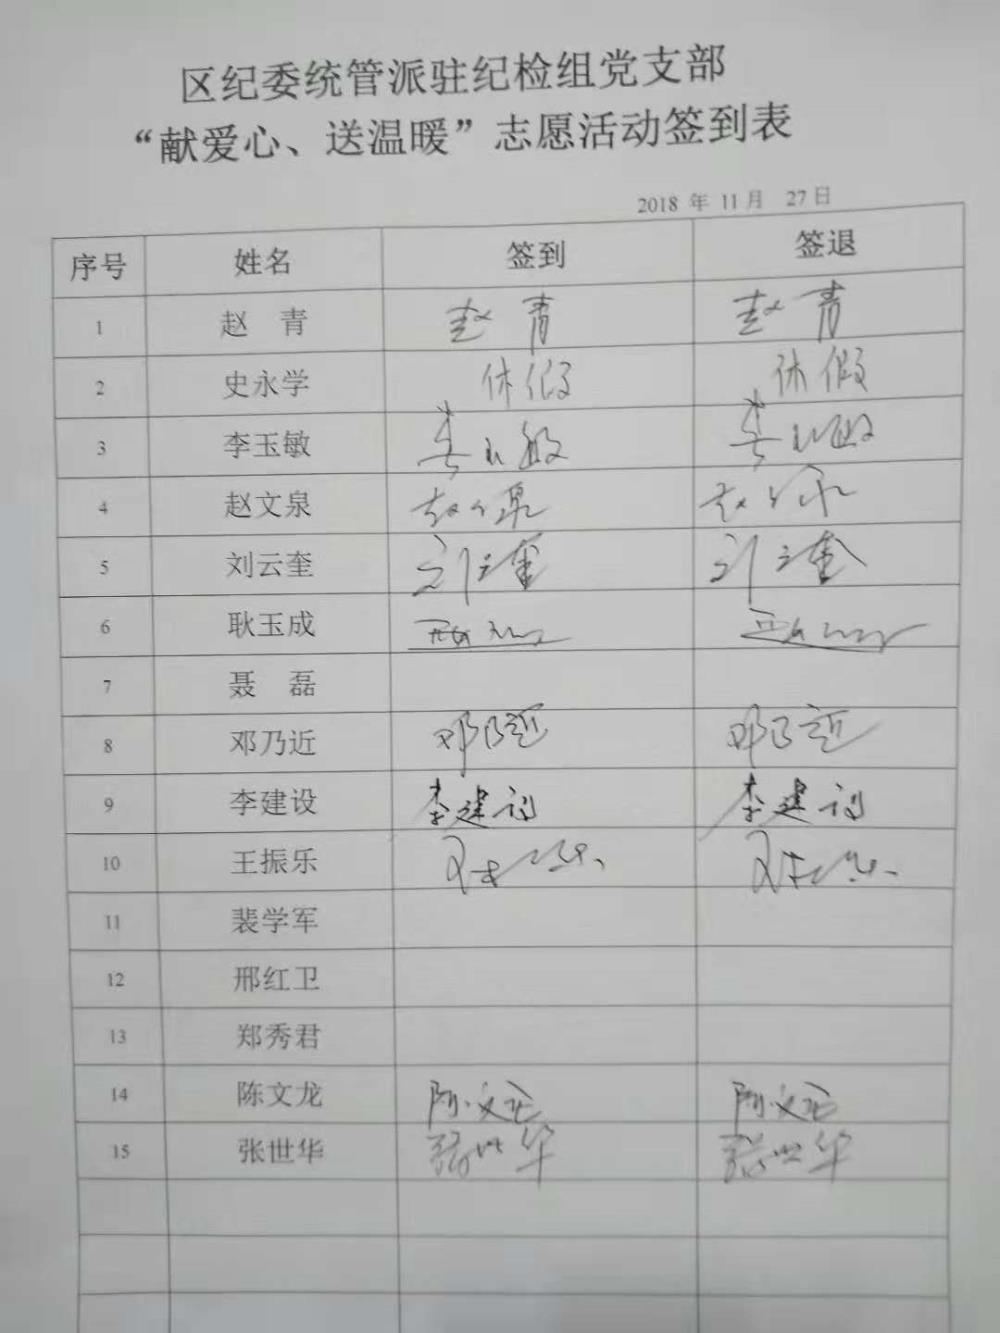 区纪委统管派驻纪检组党支部
“献爱心、送温暖”志愿活动签到表
2018 年 11月 27日
序号 姓名 签到 签退
1 赵 青 赵青 赵青
2 史永学 休假 休假
3 李玉敏 李玉敏 李玉敏
4 赵文泉 赵文泉 赵文泉
5 刘云奎 刘云奎 刘云奎
6 耿玉成
7 聂 磊
8 邓乃近 邓乃近 邓乃近
9 李建设 李建设 李建设
10 王振乐
11 裴学军
12 邢红卫
13 郑秀君
14 陈文龙 陈文龙 陈文龙
15 张世华 张世华 张世华